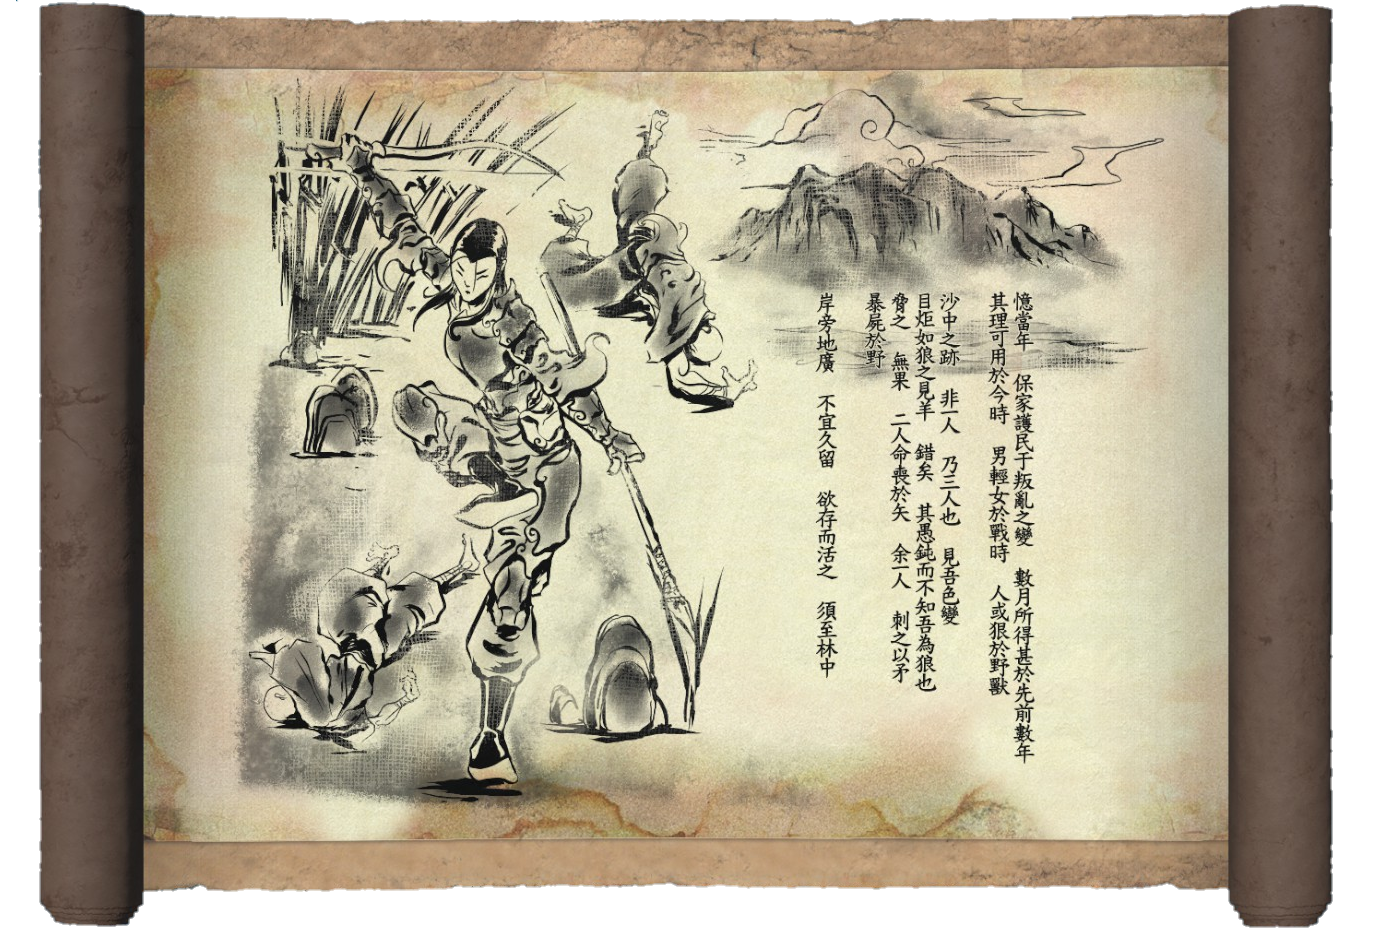 憶當年 保家護民于叛亂之變 數月所得甚於先前數年
其理可用於今時 男輕女於戰時 人或狠於野獸
沙中之跡 非一人 乃三人也 見吾色變
目炬如狼之見羊 錯矣 其愚鈍而不知吾為狼也
脅之 無果 二人命喪於矢 余一人 刺之以矛
暴屍於野
岸旁地廣 不宜久留 欲存而活之 須至林中